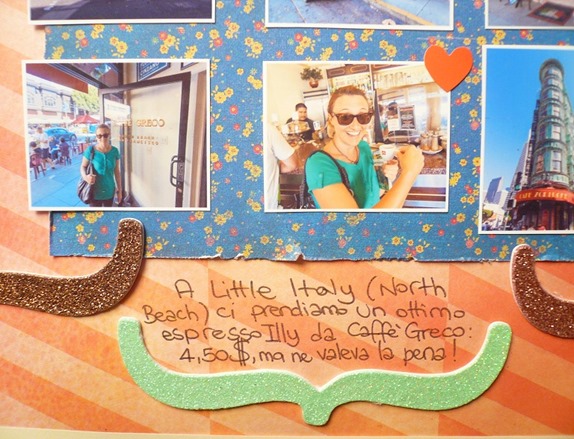 GRECO
CAFE ZOETROPE
A Little Italy (North
Beach) ci prendiamo un ottimo
espresso Illy da Caffè Greco:
4,50$, ma ne valeva la pena!